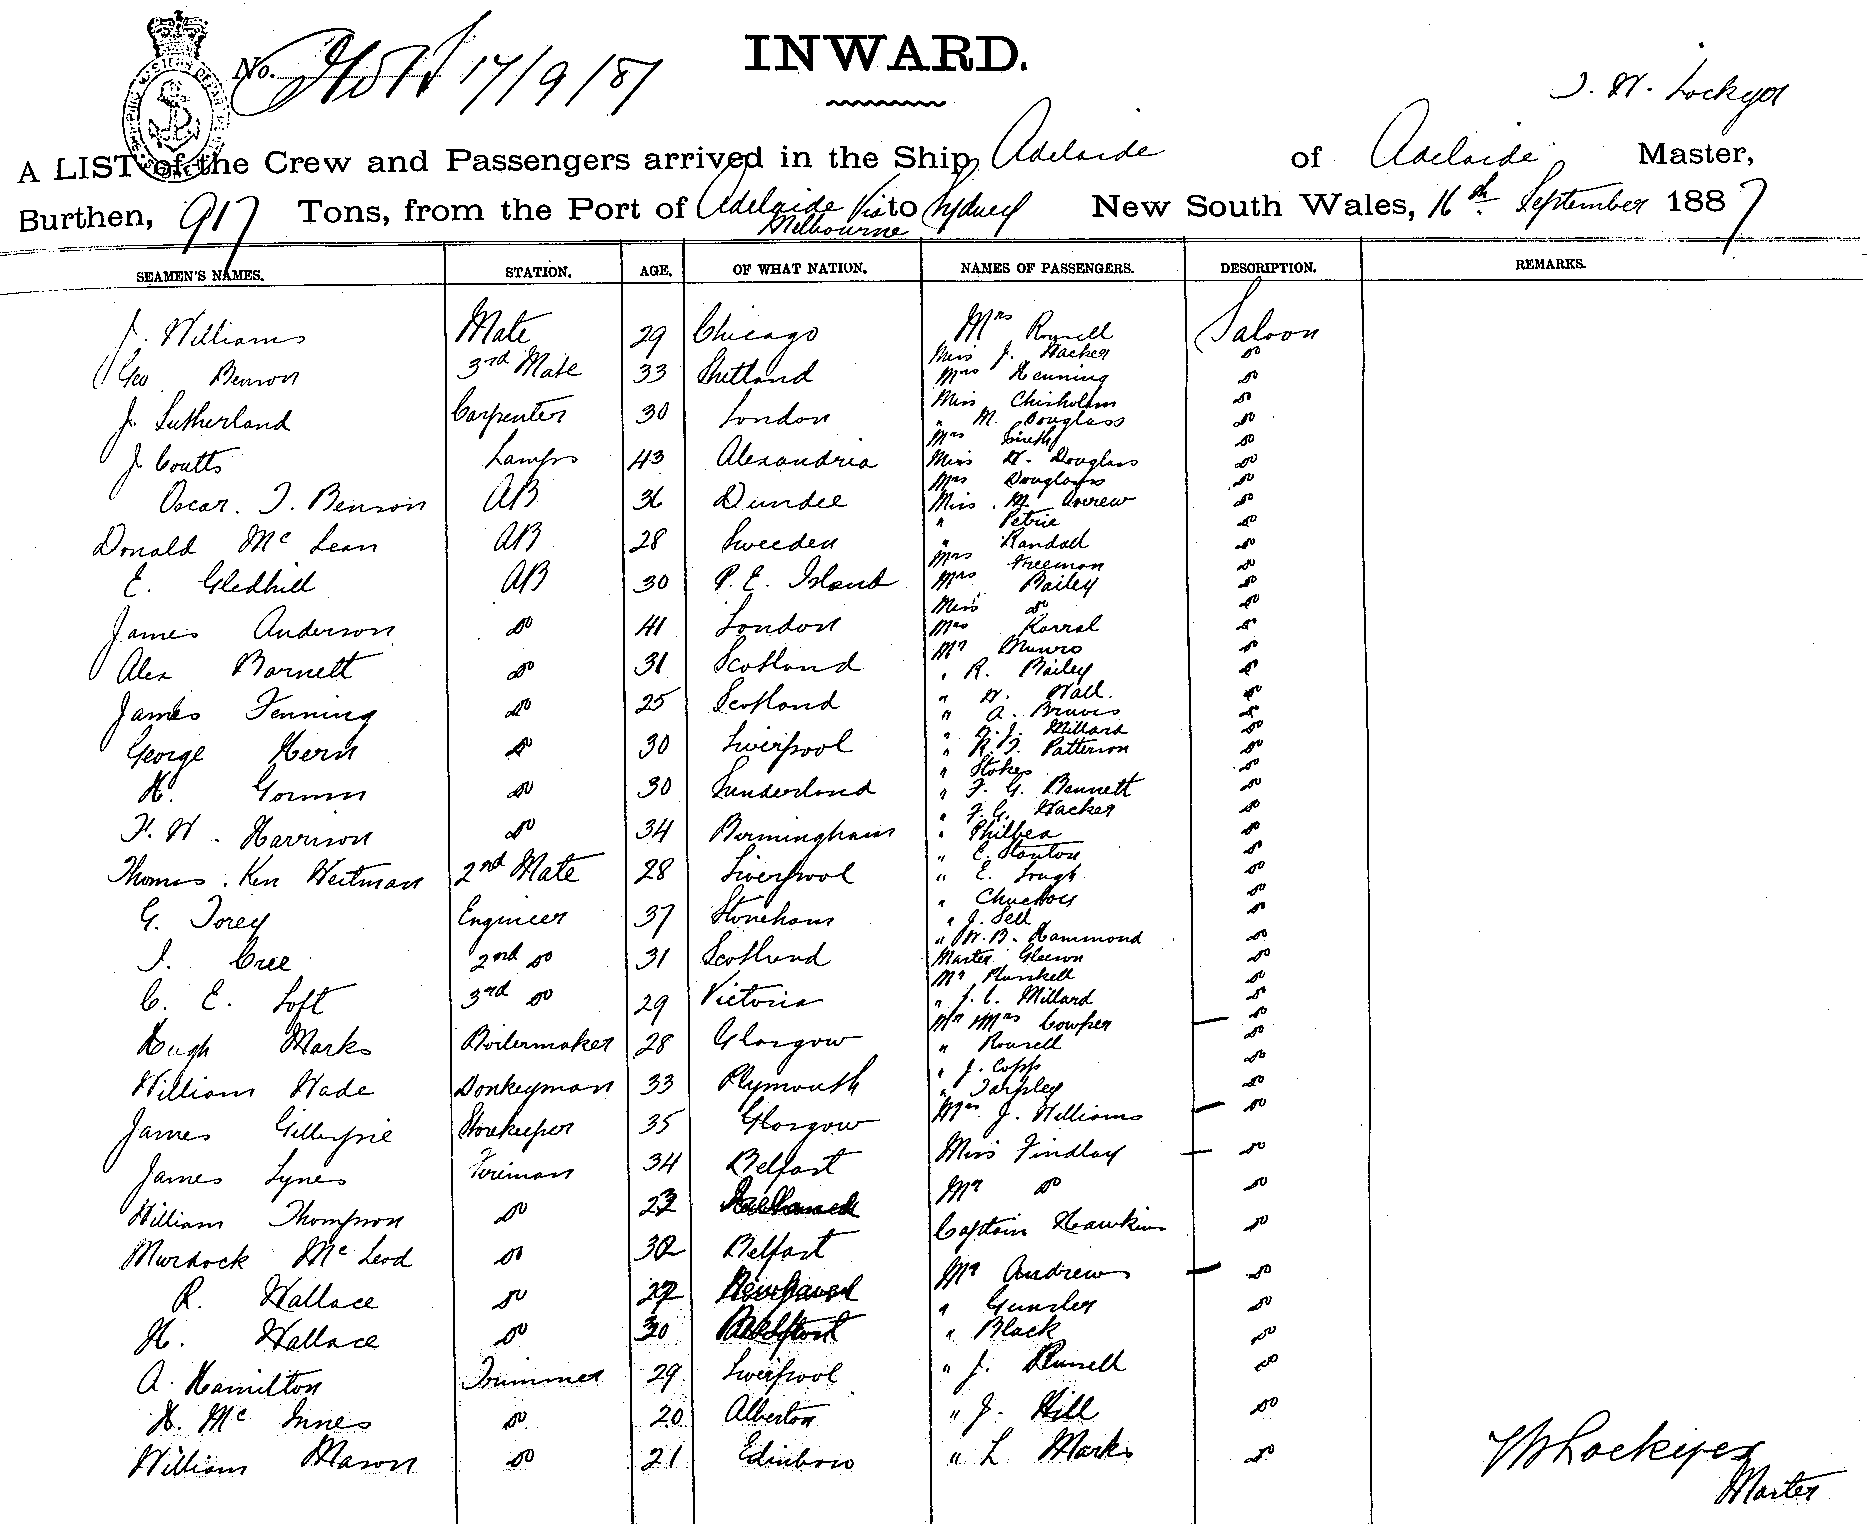 INWARD.
No. 17/9/87
J. W. Lockyer
A LIST of the Crew and Passengers arrived in the Ship Adelaide of Adelaide Master,
Burthen, 917 Tons, from the Port of Adelaide Via Melbourne to Sydney New South Wales, 16th September 1887
SEAMEN'S NAMES. STATION. AGE. OF WHAT NATION. NAMES OF PASSENGERS. DESCRIPTION. REMARKS.
J. Williams Mate 29 Chicago Mrs Saloon
Miss J. Hacker do
Geo Benson 3rd Mate 33 Shetland Mrs Henning do
Miss Chisholm do
J. Sutherland Carpenter 30 London " M. Douglass do
Mrs Smith do
J. Coutts Lamps 43 Alexandria Miss W. Douglass do
Mrs Douglass do
Oscar. J. Benson AB 36 Dundee Miss. M. do
" Petrie do
Donald Mc Lean AB 28 Sweeden " Randall do
Mrs Freeman do
E. Gledhill AB 30 P. E. Island Mrs Bailey do
Miss do do
James Anderson do 41 London Mrs do
Mr Munro do
Alex Barnett do 31 Scotland " R. Bailey do
" W. Wall. do
James Fenning do 25 Scotland " A. do
" J. Millard do
George Hern do 30 Liverpool " Patterson do
" Stokes do
H. Gorman do 30 Sunderland " F. G. Bennett do
" F. G. Hacker do
F. W. Harrison do 34 Birmingham " do
" E. Stanton do
Thomas. Ken Weitman 2nd Mate 28 Liverpool " E. Lough do
" do
G. Torey Engineer 37 Stoneham " J. Sell do
" W. B. Hammond do
J. Cree 2nd do 31 Scotland Master Gleeson do
Mr Plunkett do
C. E. Loft 3rd do 29 Victoria " J. C. Millard do
Mr Mrs Cowper do
Hugh Marks Boilermaker 28 Glasgow " do
" J. Copp do
William Wade Donkeyman 33 Plymouth " Tarpley do
Mrs J. Williams do
James Gillespie Storekeeper 35 Glasgow
Miss Findlay do
James Lynes Fireman 34 Belfast
Mr do do
William Thompson do
Captain Hawkins do
Murdock Mc Leod do 32 Belfast
Mr Andrews do
R. Wallace do
" do
H. Wallace do 30 " Black do
A. Hamilton Trimmer 29 Liverpool " J. Russell do
H. Mc Innes do 20 Alberton " J. Hill do
William Mason do 21 Edinboro " L Marks do
Lockyer
Master